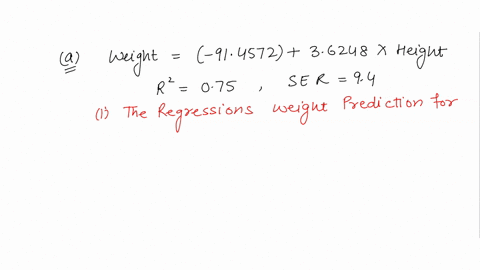 (a) Weight = (-91.4572) + 3.6248 × Height
R² = 0.75 , SER = 9.4
(1) The Regressions weight Prediction for